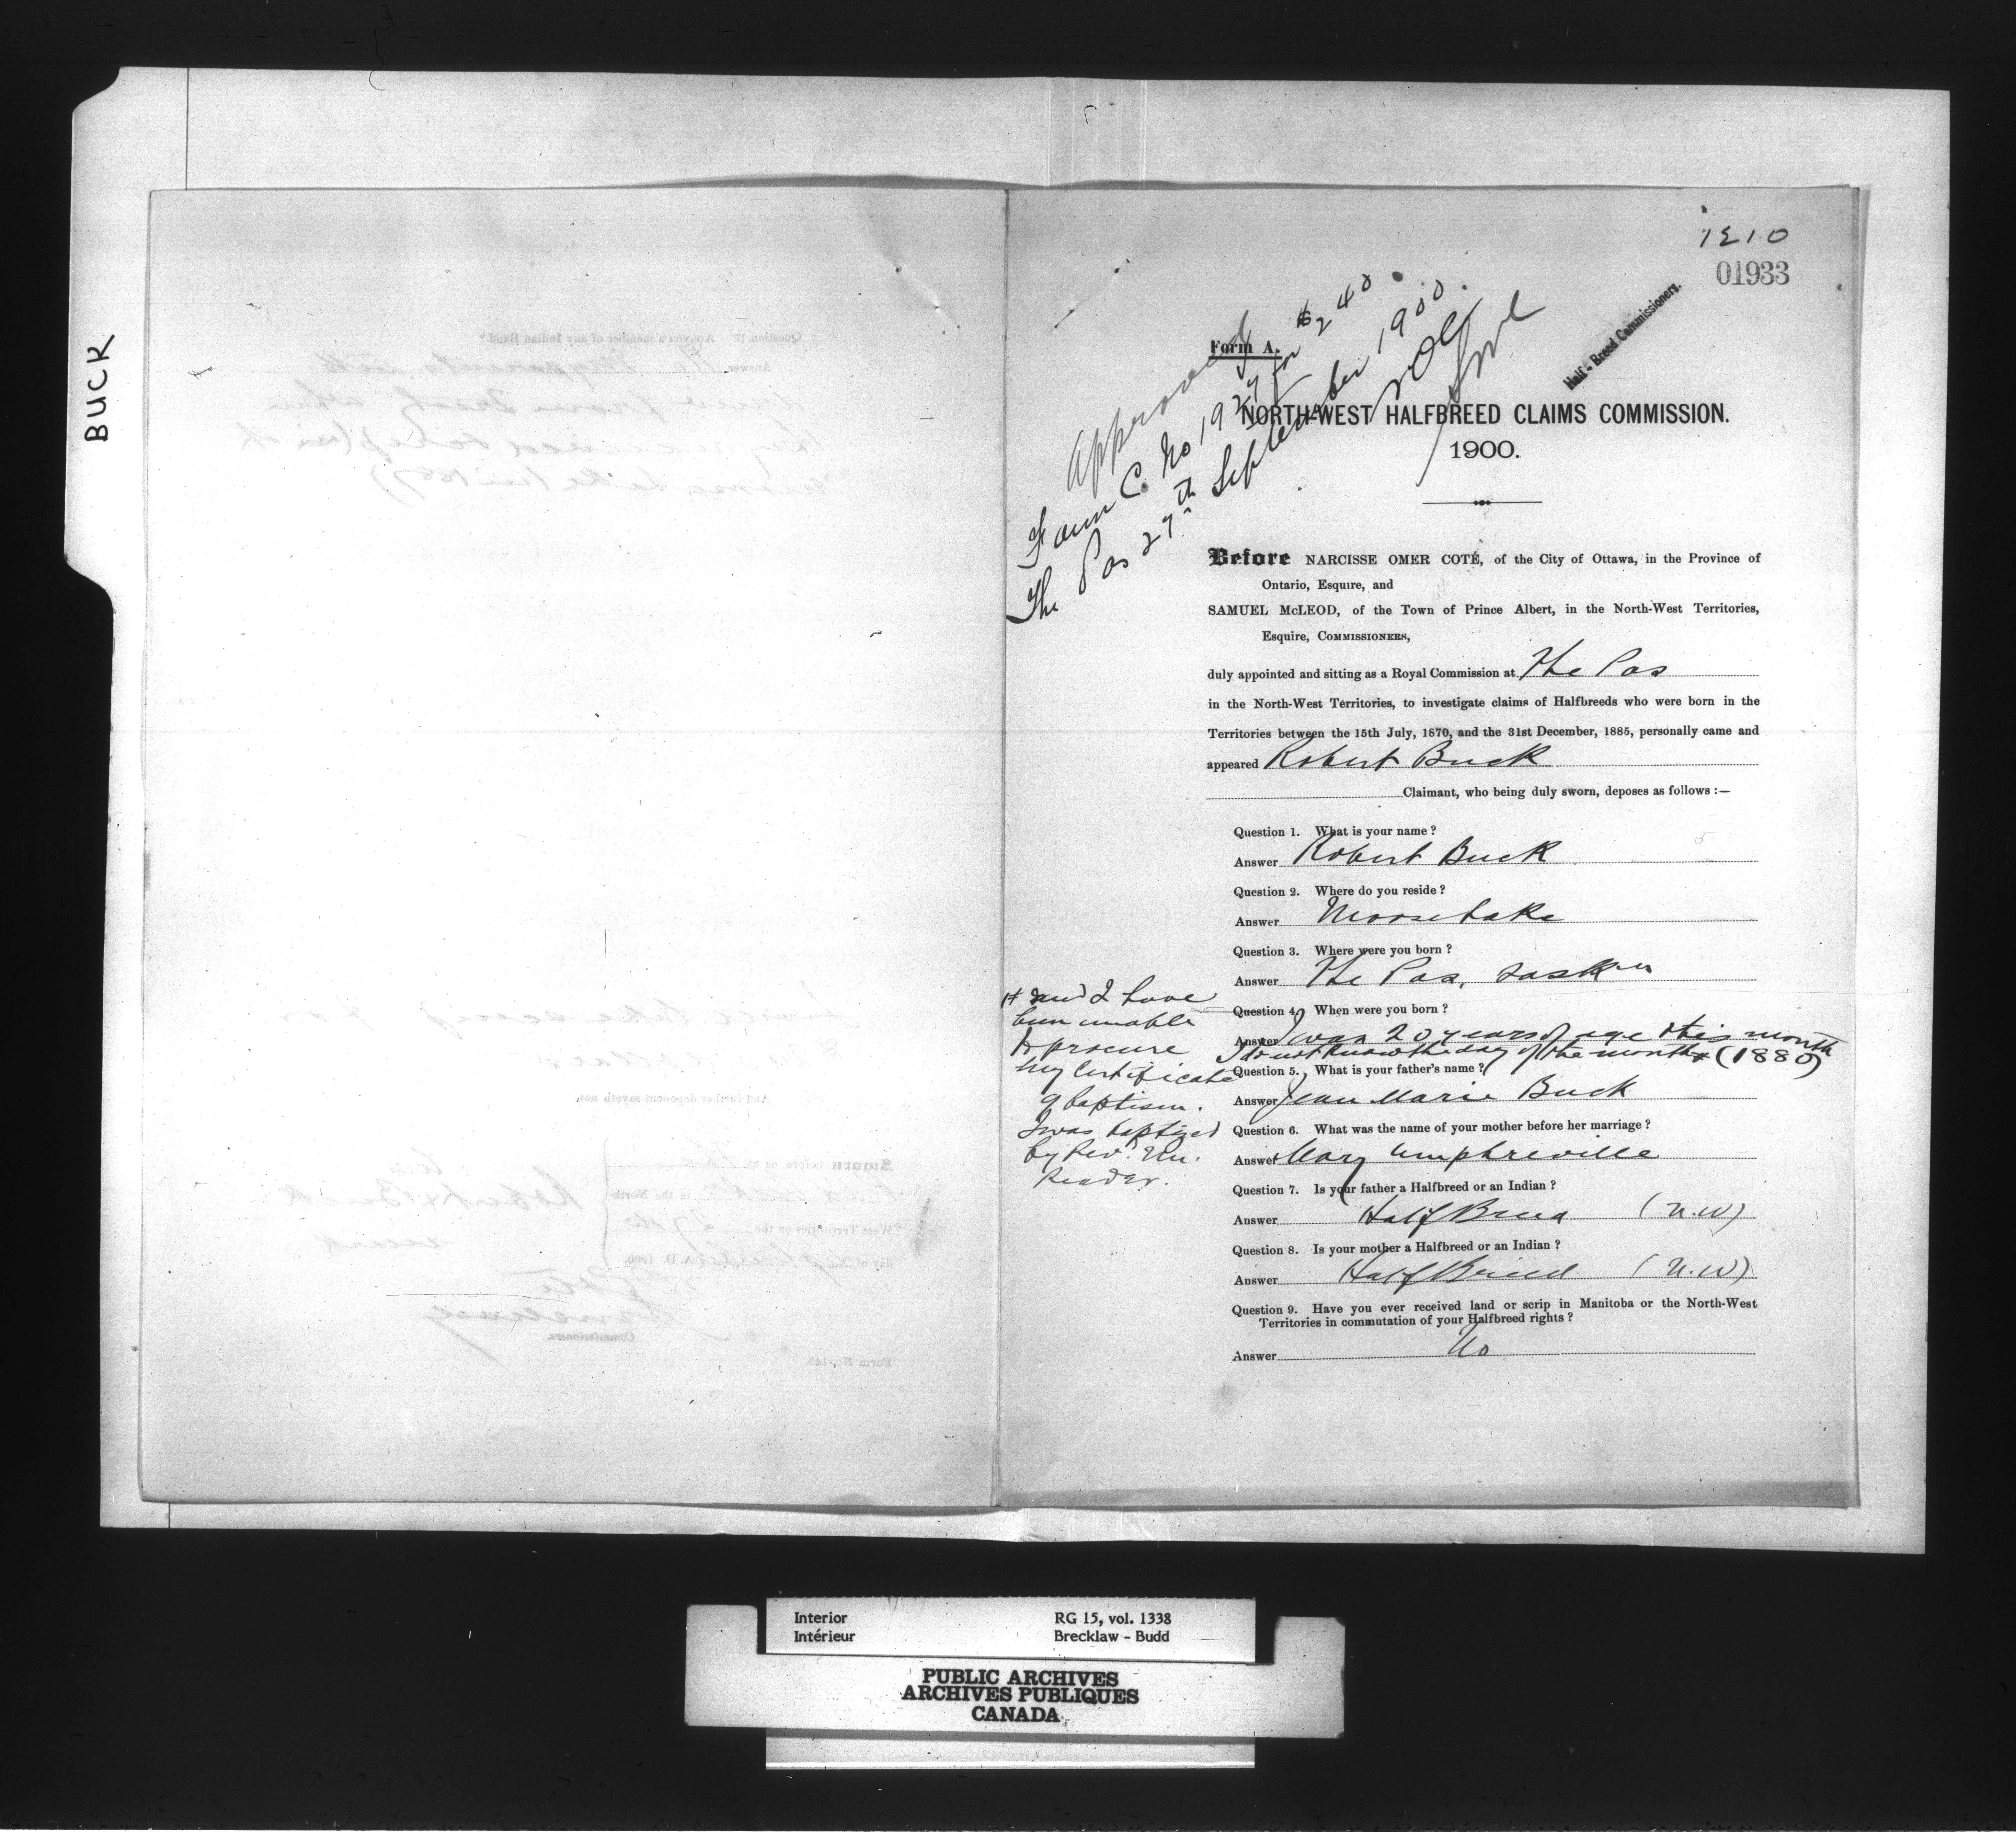 BUCK
1210
01933
Half-Breed Commissioners.
Approved
Form C. No 1927 for $240.
The Pas 27th September 1900.
NOC
Form A.
NORTH-WEST HALFBREED CLAIMS COMMISSION.
1900.
Before NARCISSE OMER COTÉ, of the City of Ottawa, in the Province of
Ontario, Esquire, and
SAMUEL McLEOD, of the Town of Prince Albert, in the North-West Territories,
Esquire, COMMISSIONERS,
duly appointed and sitting as a Royal Commission at The Pas
in the North-West Territories, to investigate claims of Halfbreeds who were born in the
Territories between the 15th July, 1870, and the 31st December, 1885, personally came and
appeared Robert Buck
Claimant, who being duly sworn, deposes as follows :—
Question 1. What is your name ?
Answer Robert Buck
Question 2. Where do you reside ?
Answer Moose Lake
Question 3. Where were you born ?
Answer The Pas, Saskn
Question 4. When were you born ?
Answer I was 20 years of age this month
I do not know the day of the month (1880)
and I have
been unable
to procure
my certificate
of baptism.
I was baptized
by Revd. Mr.
Reader.
Question 5. What is your father's name ?
Answer Jean Marie Buck
Question 6. What was the name of your mother before her marriage ?
Answer Mary Umphreville
Question 7. Is your father a Halfbreed or an Indian ?
Answer Half Breed (N.W)
Question 8. Is your mother a Halfbreed or an Indian ?
Answer Half Breed (N.W)
Question 9. Have you ever received land or scrip in Manitoba or the North-West
Territories in commutation of your Halfbreed rights ?
Answer No
Interior RG 15, vol. 1338
Intérieur Brecklaw - Budd
PUBLIC ARCHIVES
ARCHIVES PUBLIQUES
CANADA